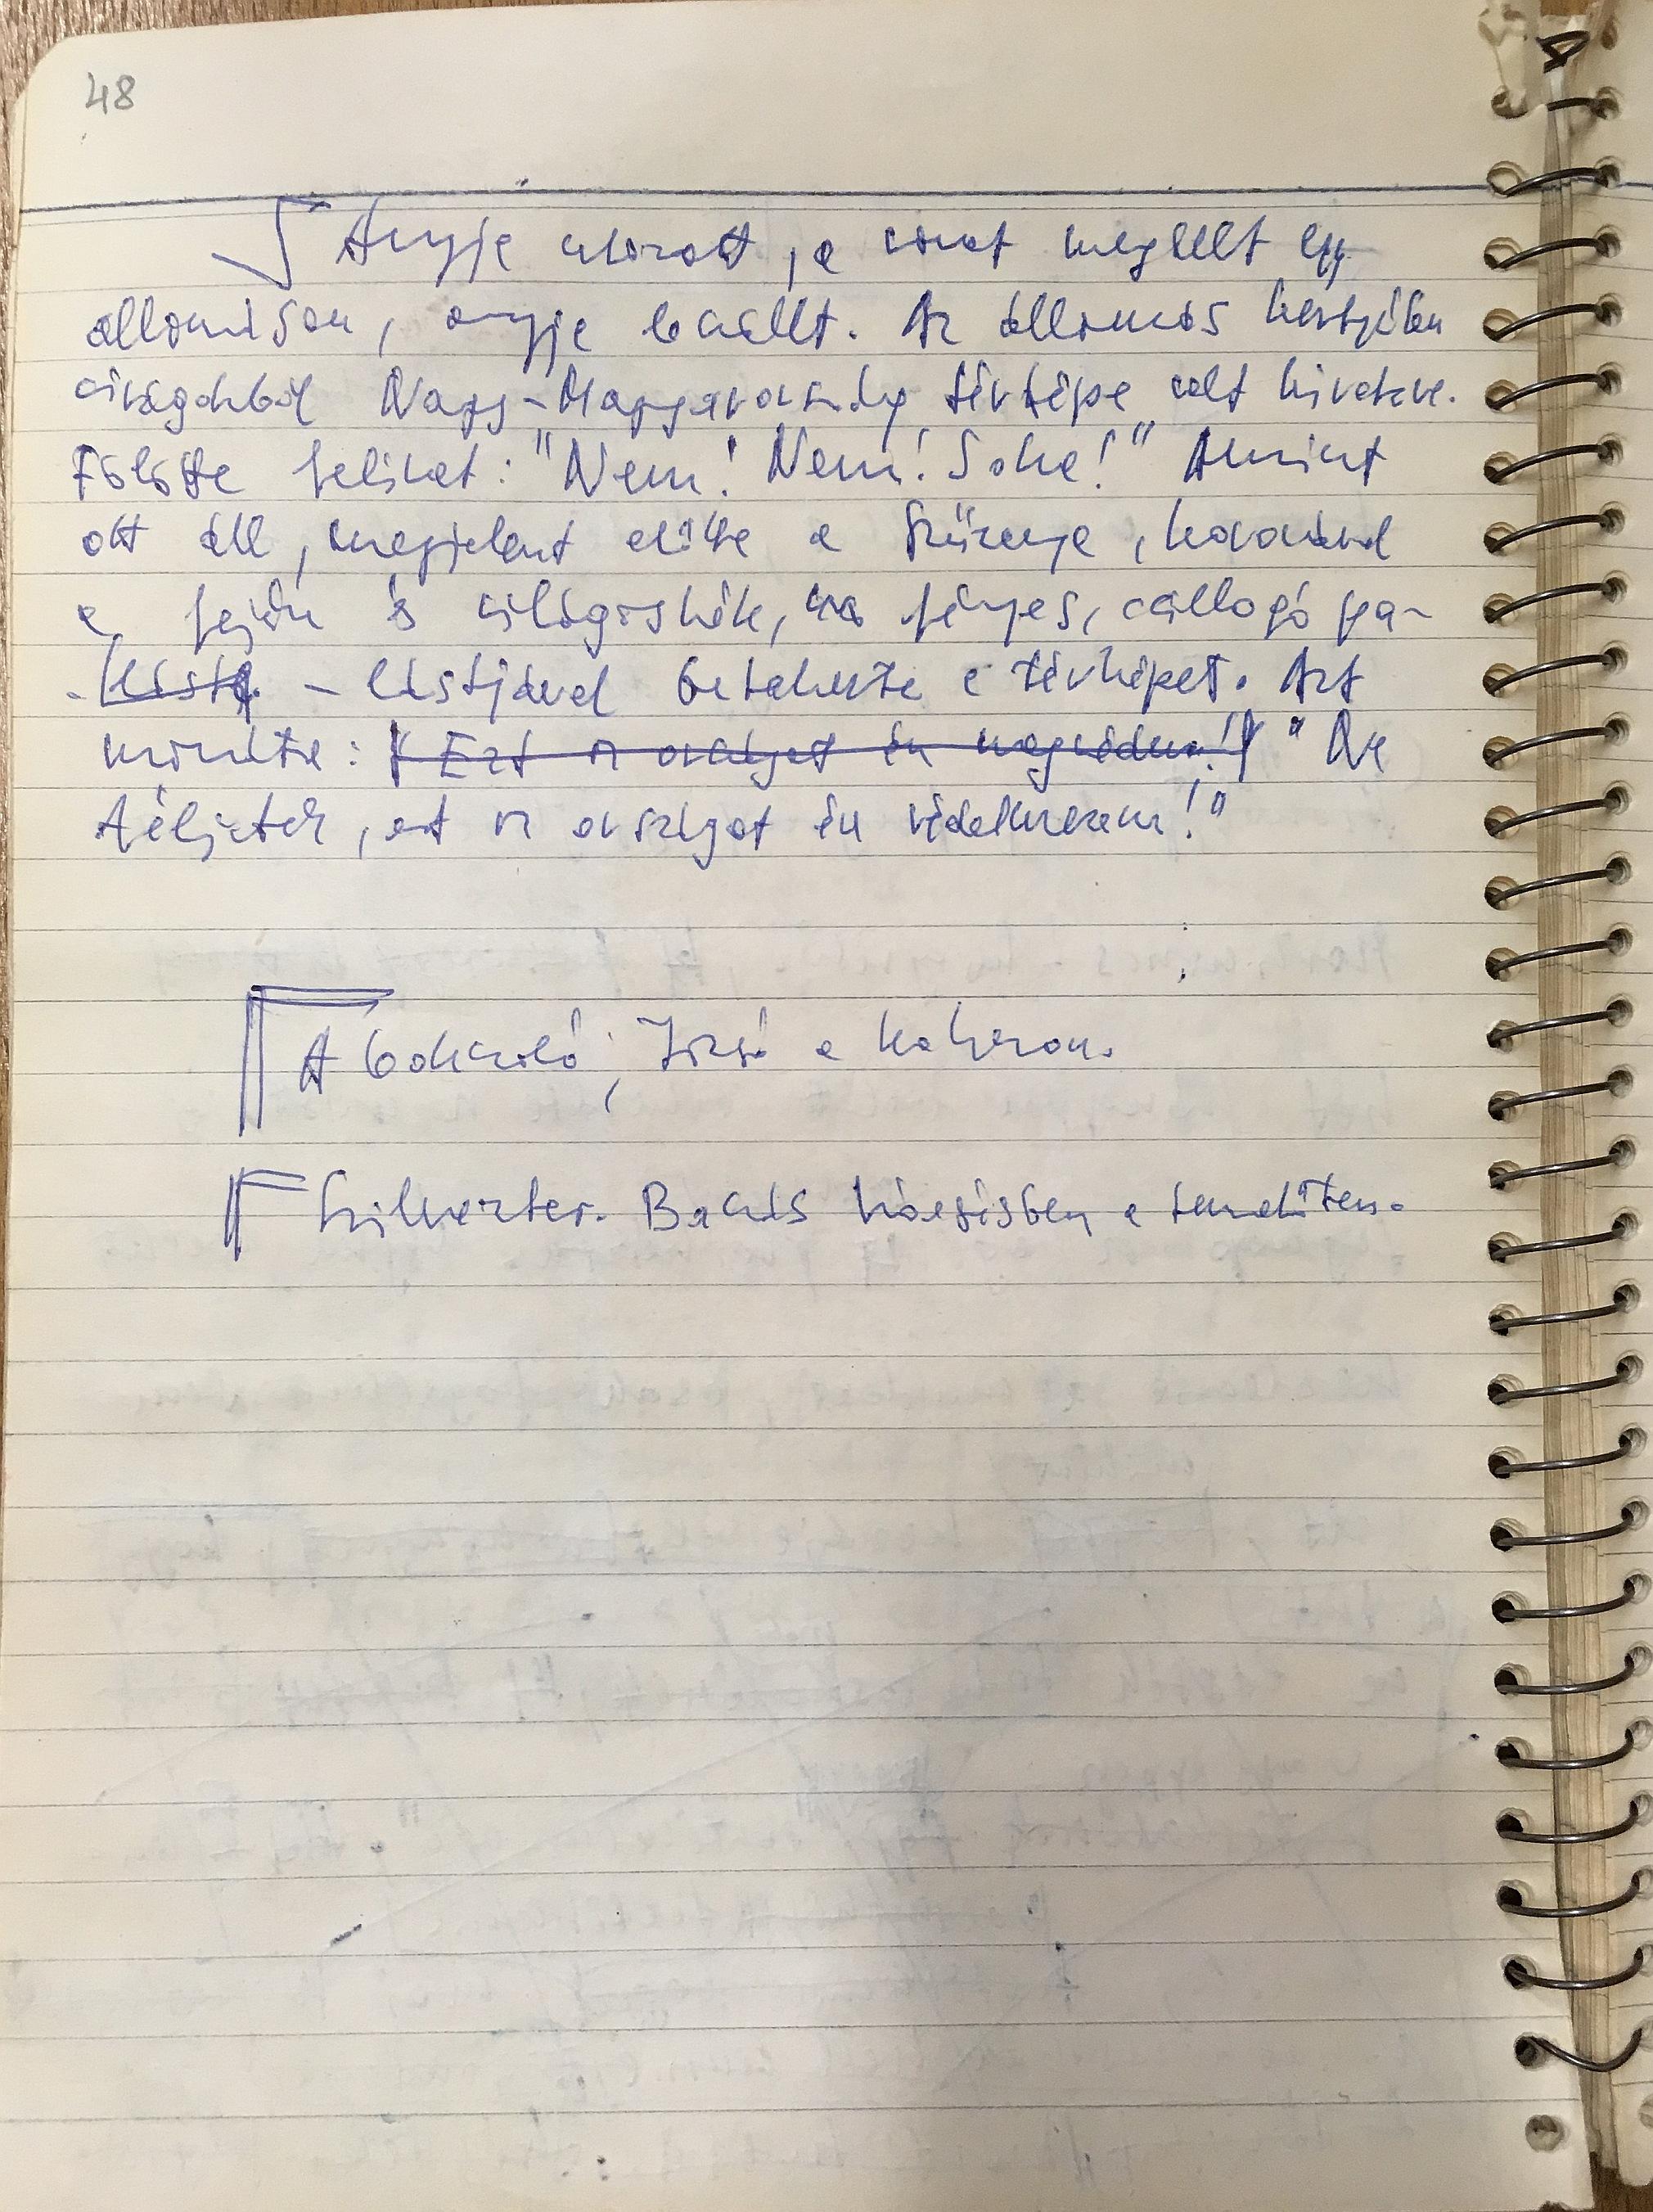 48
Anyja utazott, a vonat megállt egy
állomáson, anyja leszállt. Az állomás kertjében
virágokból Nagy-Magyarország térképe volt kirakva.
Fölötte felirat: "Nem! Nem! Soha!" Amint
ott áll, megjelent előtte a Szűzanya, koronával
a fején és világoskék, fényes, csillogó pa-
- lástjával betakarta a térképet. Azt
mondta: Ezt az országot én megvédem! "Ne
féljetek, ezt az országot én védelmezem!"
A bodzaló, Józsi a kabzson.
Szilveszter. Bachus hóesésben a temetőben.